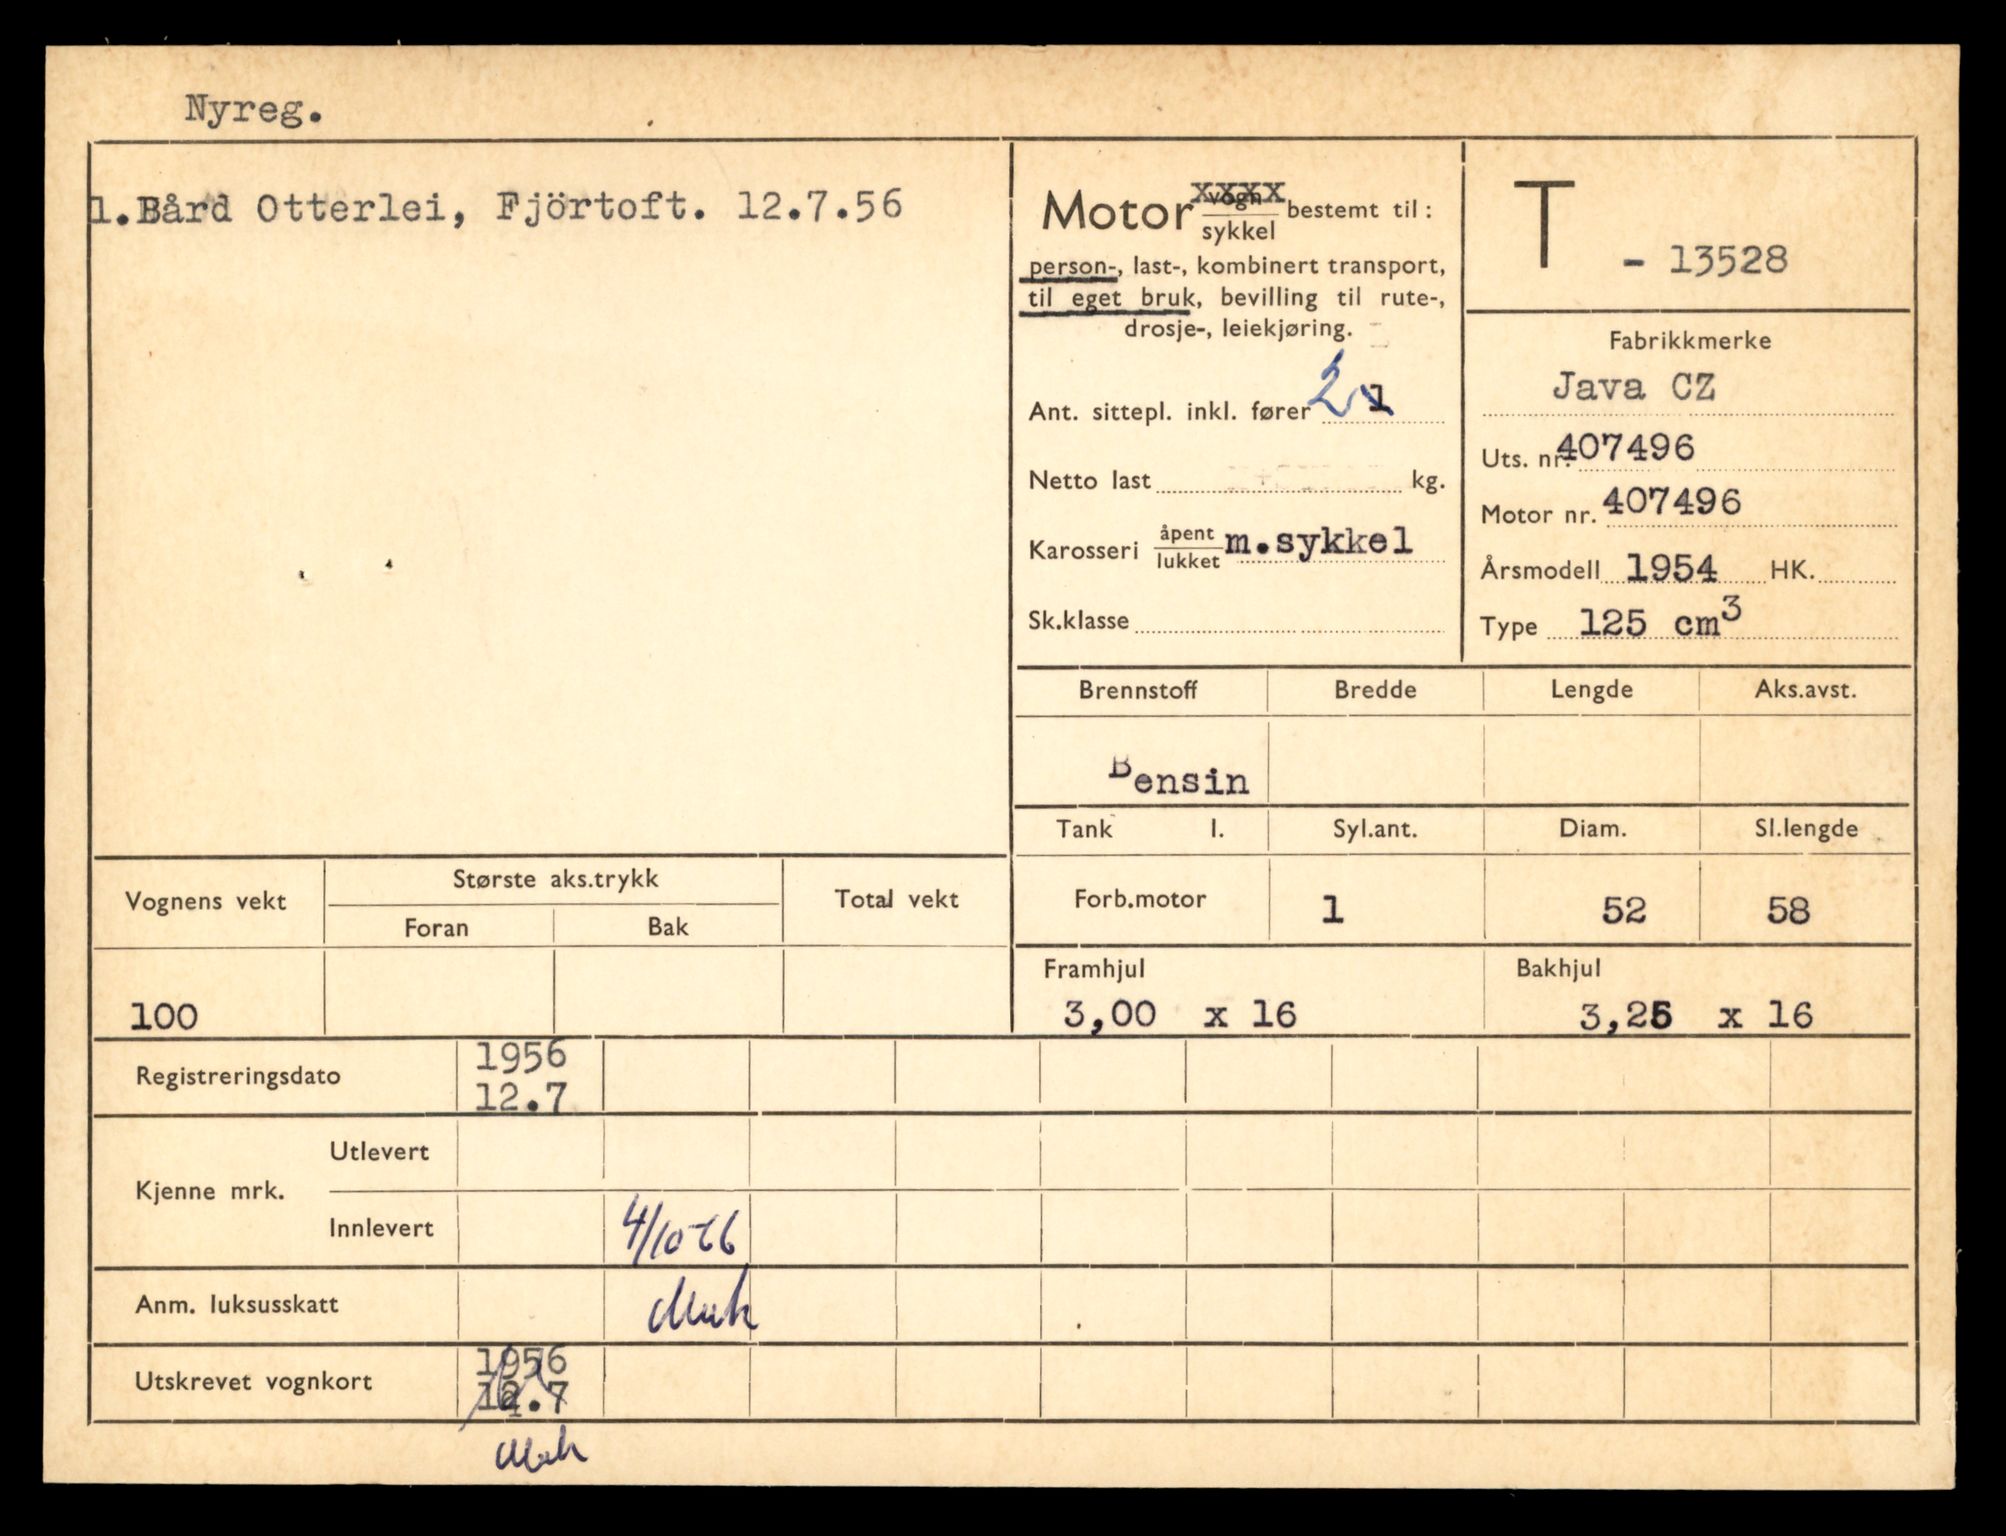 Nyreg.
1. Bård Otterlei, Fjörtoft. 12.7.56
Motor vogn xxxx bestemt til :
sykkel
person-, last-, kombinert transport,
til eget bruk, bevilling til rute-,
drosje-, leiekjøring.
Ant. sittepl. inkl. fører 2 1
Netto last kg.
Karosseri åpent m.sykkel
lukket
Sk.klasse
T - 13528
Fabrikkmerke
Java CZ
Uts. nr. 407496
Motor nr. 407496
Årsmodell 1954 HK.
Type 125 cm3
Brennstoff Bredde Lengde Aks.avst.
Bensin
Tank l. Syl.ant. Diam. Sl.lengde
Forb.motor 1 52 58
Framhjul Bakhjul
3,00 x 16 3,25 x 16
Vognens vekt Største aks.trykk Total vekt
Foran Bak
100
Registreringsdato 1956
12.7
Kjenne mrk. Utlevert
Innlevert 4/10-66
Anm. luksusskatt
Utskrevet vognkort 1956
12.7